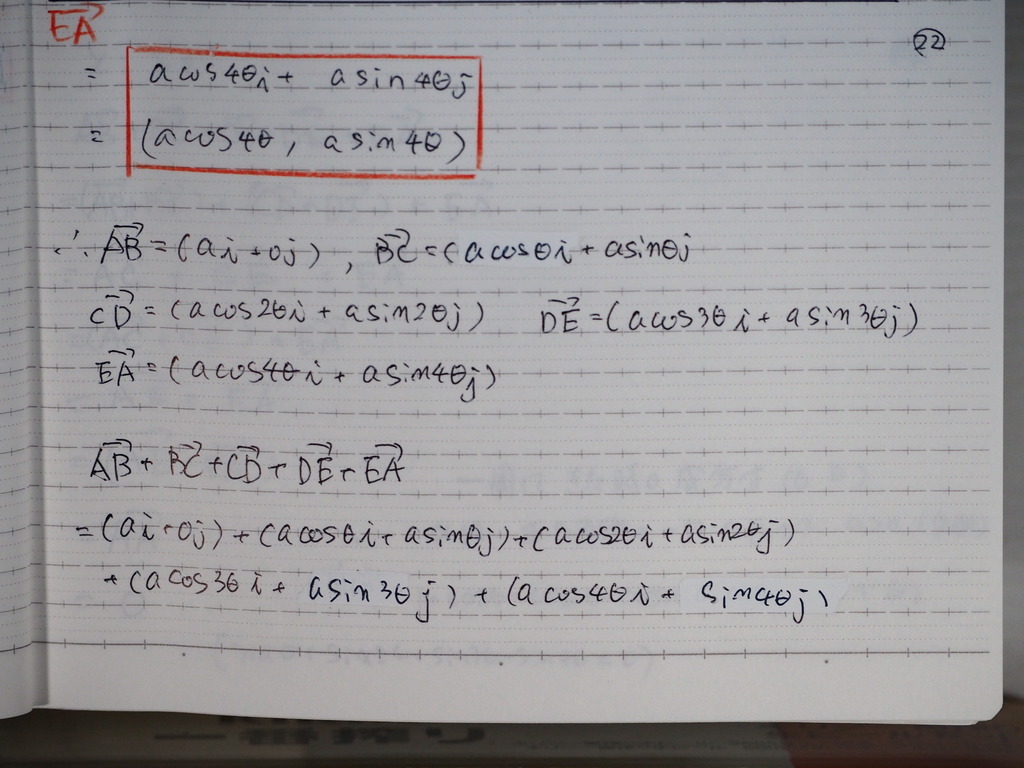 EA
22
= a cos4θi + a sin4θj
= (a cos4θ, a sin4θ)
∴ AB = (ai + 0j), BC = (a cosθi + a sinθj
CD = (a cos2θi + a sin2θj) DE = (a cos3θi + a sin3θj)
EA = (a cos4θi + a sin4θj)
AB + BC + CD + DE + EA
= (ai + 0j) + (a cosθi + a sinθj) + (a cos2θi + a sin2θj)
+ (a cos3θi + a sin3θj) + (a cos4θi + sin4θj)